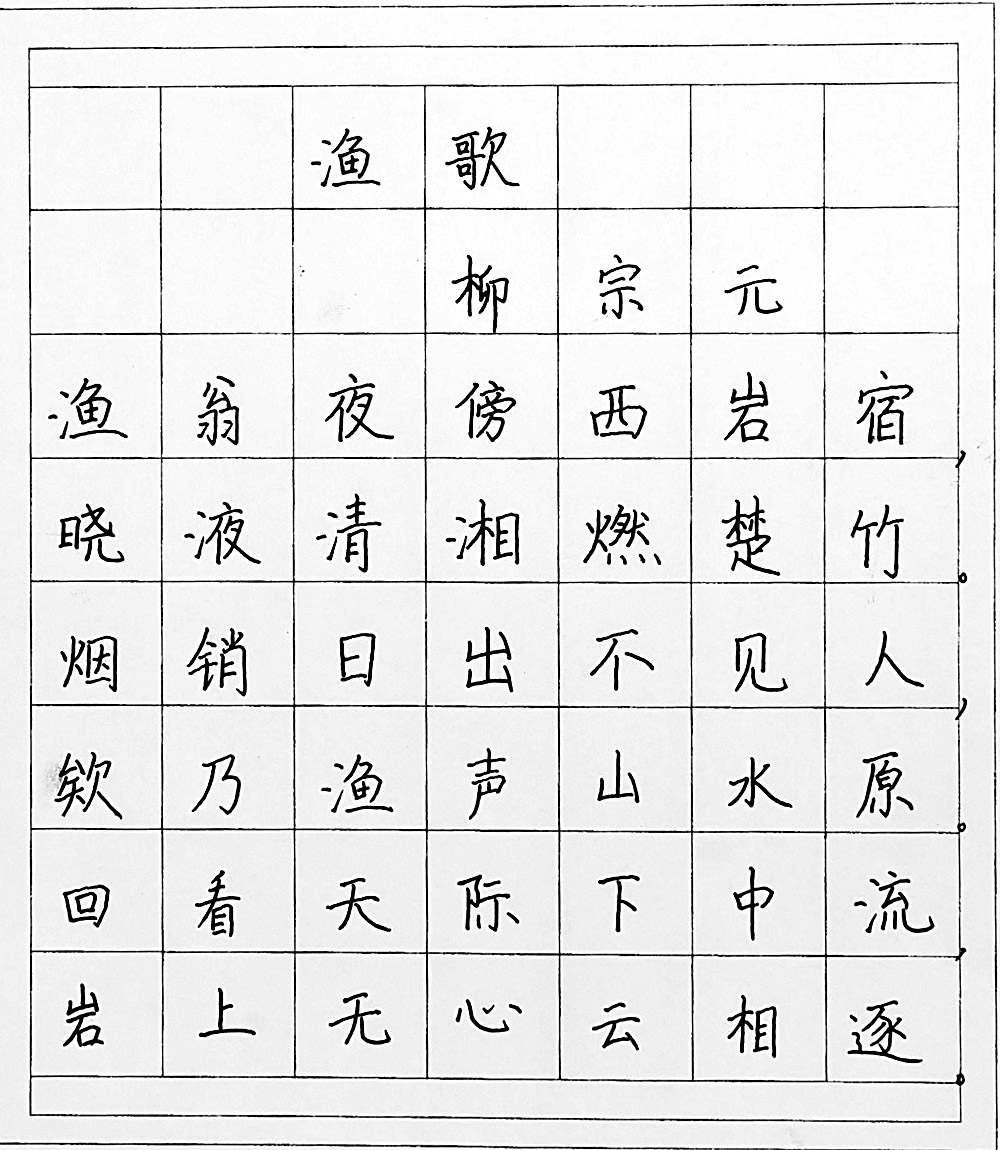 渔歌
柳宗元
渔翁夜傍西岩宿，
晓液清湘燃楚竹。
烟销日出不见人，
欸乃渔声山水原。
回看天际下中流，
岩上无心云相逐。